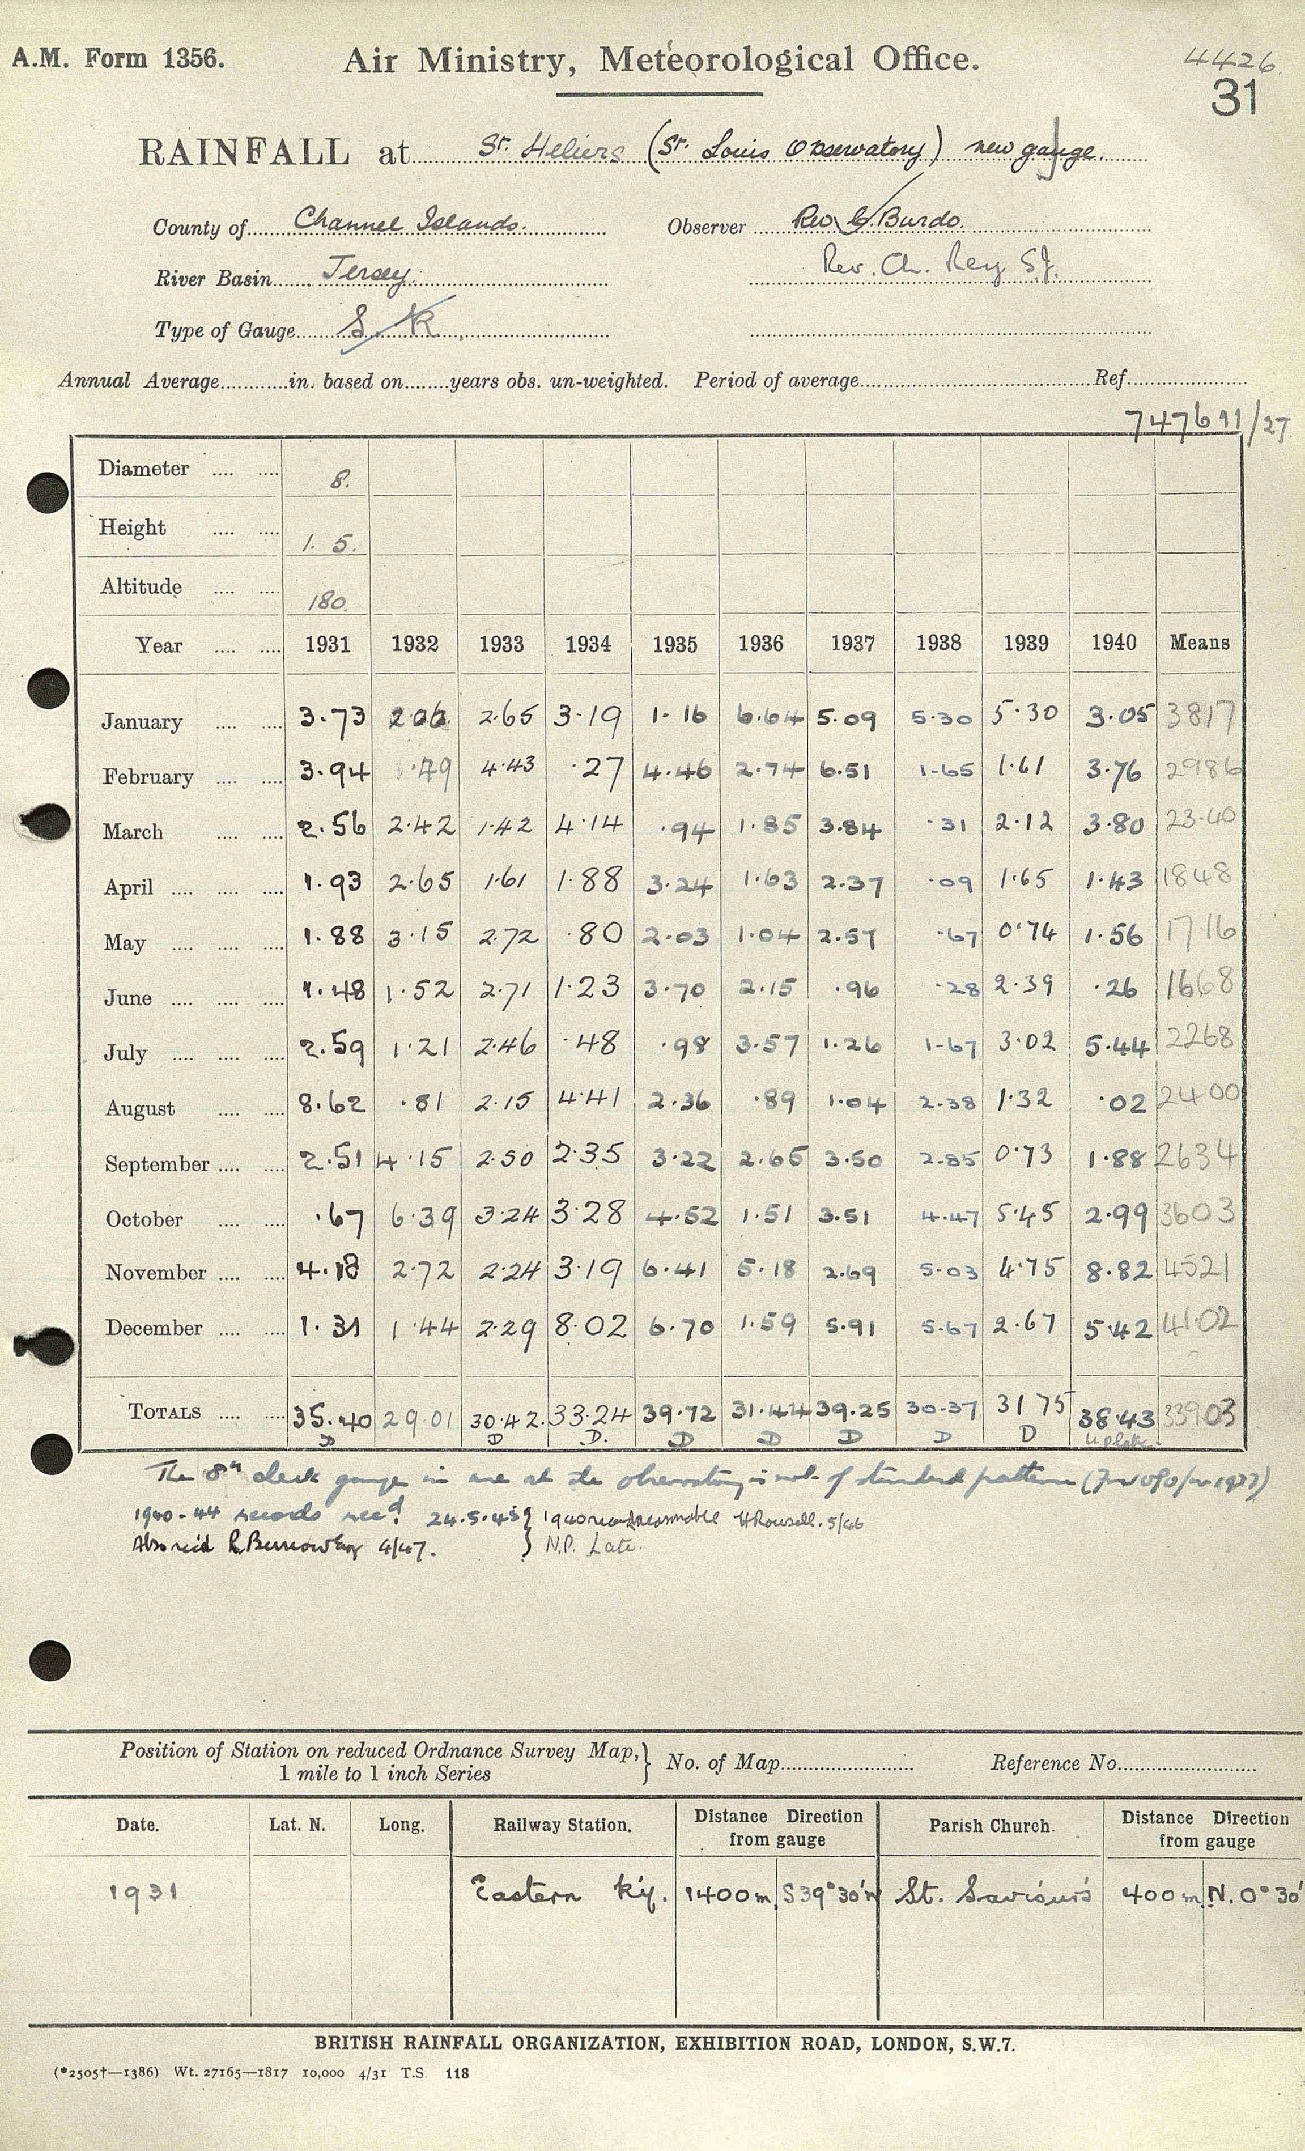 A.M. Form 1356. Air Ministry, Meteorological Office. 4426.
31
RAINFALL at St. Heliers (St. Louis Observatory) new gauge.
County of Channel Islands. Observer Rev. G. Burdo.
River Basin Jersey. Rev. Ch. Rey S.J.
Type of Gauge S K
Annual Average in. based on years obs. un-weighted. Period of average Ref
747611/27
Diameter 8.
Height 1. 5.
Altitude 180.
Year 1931 1932 1933 1934 1935 1936 1937 1938 1939 1940 Means
January 3.73 2.06 2.65 3.19 1.16 6.64 5.09 5.30 5.30 3.05 3817
February 3.94 .49 4.43 .27 4.46 2.74 6.51 1.65 1.61 3.76 2986
March 2.56 2.42 1.42 4.14 .94 1.85 3.84 .31 2.12 3.80 23.40
April 1.93 2.65 1.61 1.88 3.24 1.63 2.37 .09 1.65 1.43 1848
May 1.88 3.15 2.72 .80 2.03 1.04 2.57 .67 0.74 1.56 1716
June 1.48 1.52 2.71 1.23 3.70 2.15 .96 .28 2.39 .26 1668
July 2.59 1.21 2.46 .48 .98 3.57 1.26 1.67 3.02 5.44 2268
August 8.62 .81 2.15 4.41 2.36 .89 1.04 2.38 1.32 .02 2400
September 2.51 4.15 2.50 2.35 3.22 2.65 3.50 2.85 0.73 1.88 2634
October .67 6.39 3.24 3.28 4.52 1.51 3.51 4.47 5.45 2.99 3603
November 4.18 2.72 2.24 3.19 6.41 5.18 2.69 5.03 4.75 8.82 4521
December 1.31 1.44 2.29 8.02 6.70 1.59 5.91 5.67 2.67 5.42 4102
TOTALS 35.40 29.01 30.42 33.24 39.72 31.44 39.25 30.37 31 75 38.43 33903
D D D. D D D D D
The 8" gauge in use at the observatory is not of standard pattern
1940-44 records recd. 24.5.45 } 1940 reasonable 5/46
Also rec'd 4/47. } N.P. Late.
Position of Station on reduced Ordnance Survey Map, } No. of Map Reference No.
1 mile to 1 inch Series
Date. Lat. N. Long. Railway Station. Distance Direction from gauge Parish Church. Distance Direction from gauge
1931 Eastern Rly. 1400m S39°30'W St. Saviours 400m N. 0° 30'
BRITISH RAINFALL ORGANIZATION, EXHIBITION ROAD, LONDON, S.W.7.
(*2505†—1386) Wt. 27165—1817 10,000 4/31 T.S 118